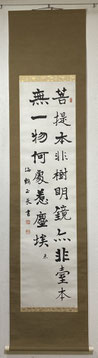 菩提本非樹明鏡亦非臺本
無一物何處惹塵埃